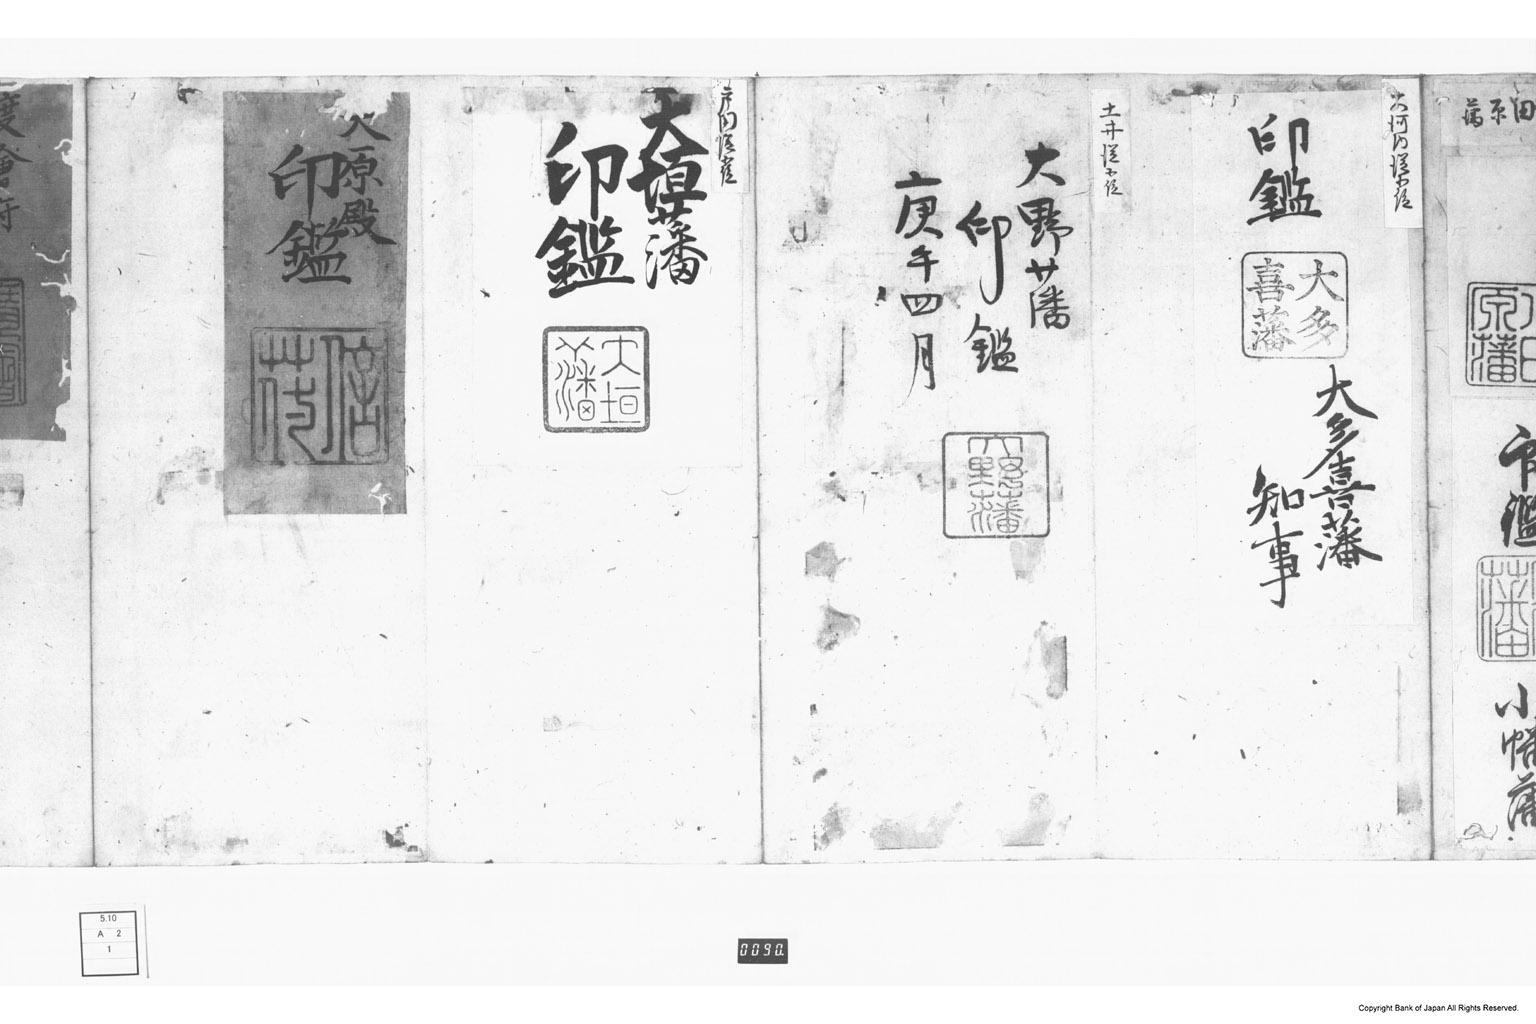 田原
藩
原藩
印鑑
藩
小幡藩
大河内従五位
印鑑
大多
喜藩
大多喜藩
知事
土井従五位
大野藩
印鑑
庚午四月
大野藩
戸田従
大垣藩
印鑑
大垣
藩
大原殿
印鑑
信
度会府
5.10
A 2
1
0090
Copyright Bank of Japan All Rights Reserved.